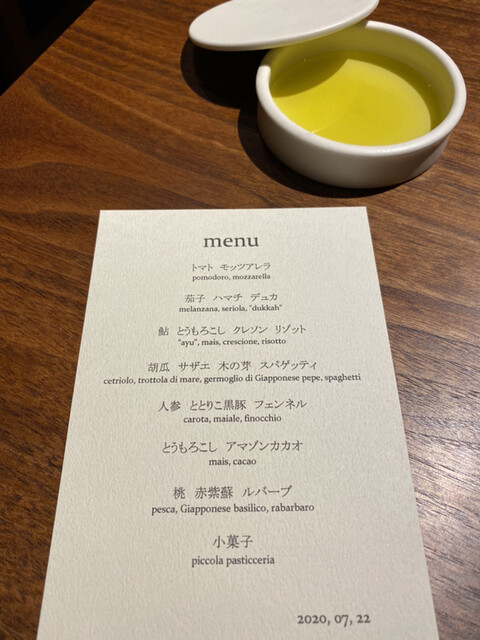 menu
トマト モッツアレラ
pomodoro, mozzarella
茄子 ハマチ デュカ
melanzana, seriola, "dukkah"
鮎 とうもろこし クレソン リゾット
"ayu", mais, crescione, risotto
胡瓜 サザエ 木の芽 スパゲッティ
cetriolo, trottola di mare, germoglio di Giapponese pepe, spaghetti
人参 ととりこ黒豚 フェンネル
carota, maiale, finocchio
とうもろこし アマゾンカカオ
mais, cacao
桃 赤紫蘇 ルバーブ
pesca, Giapponese basilico, rabarbaro
小菓子
piccola pasticceria
2020, 07, 22